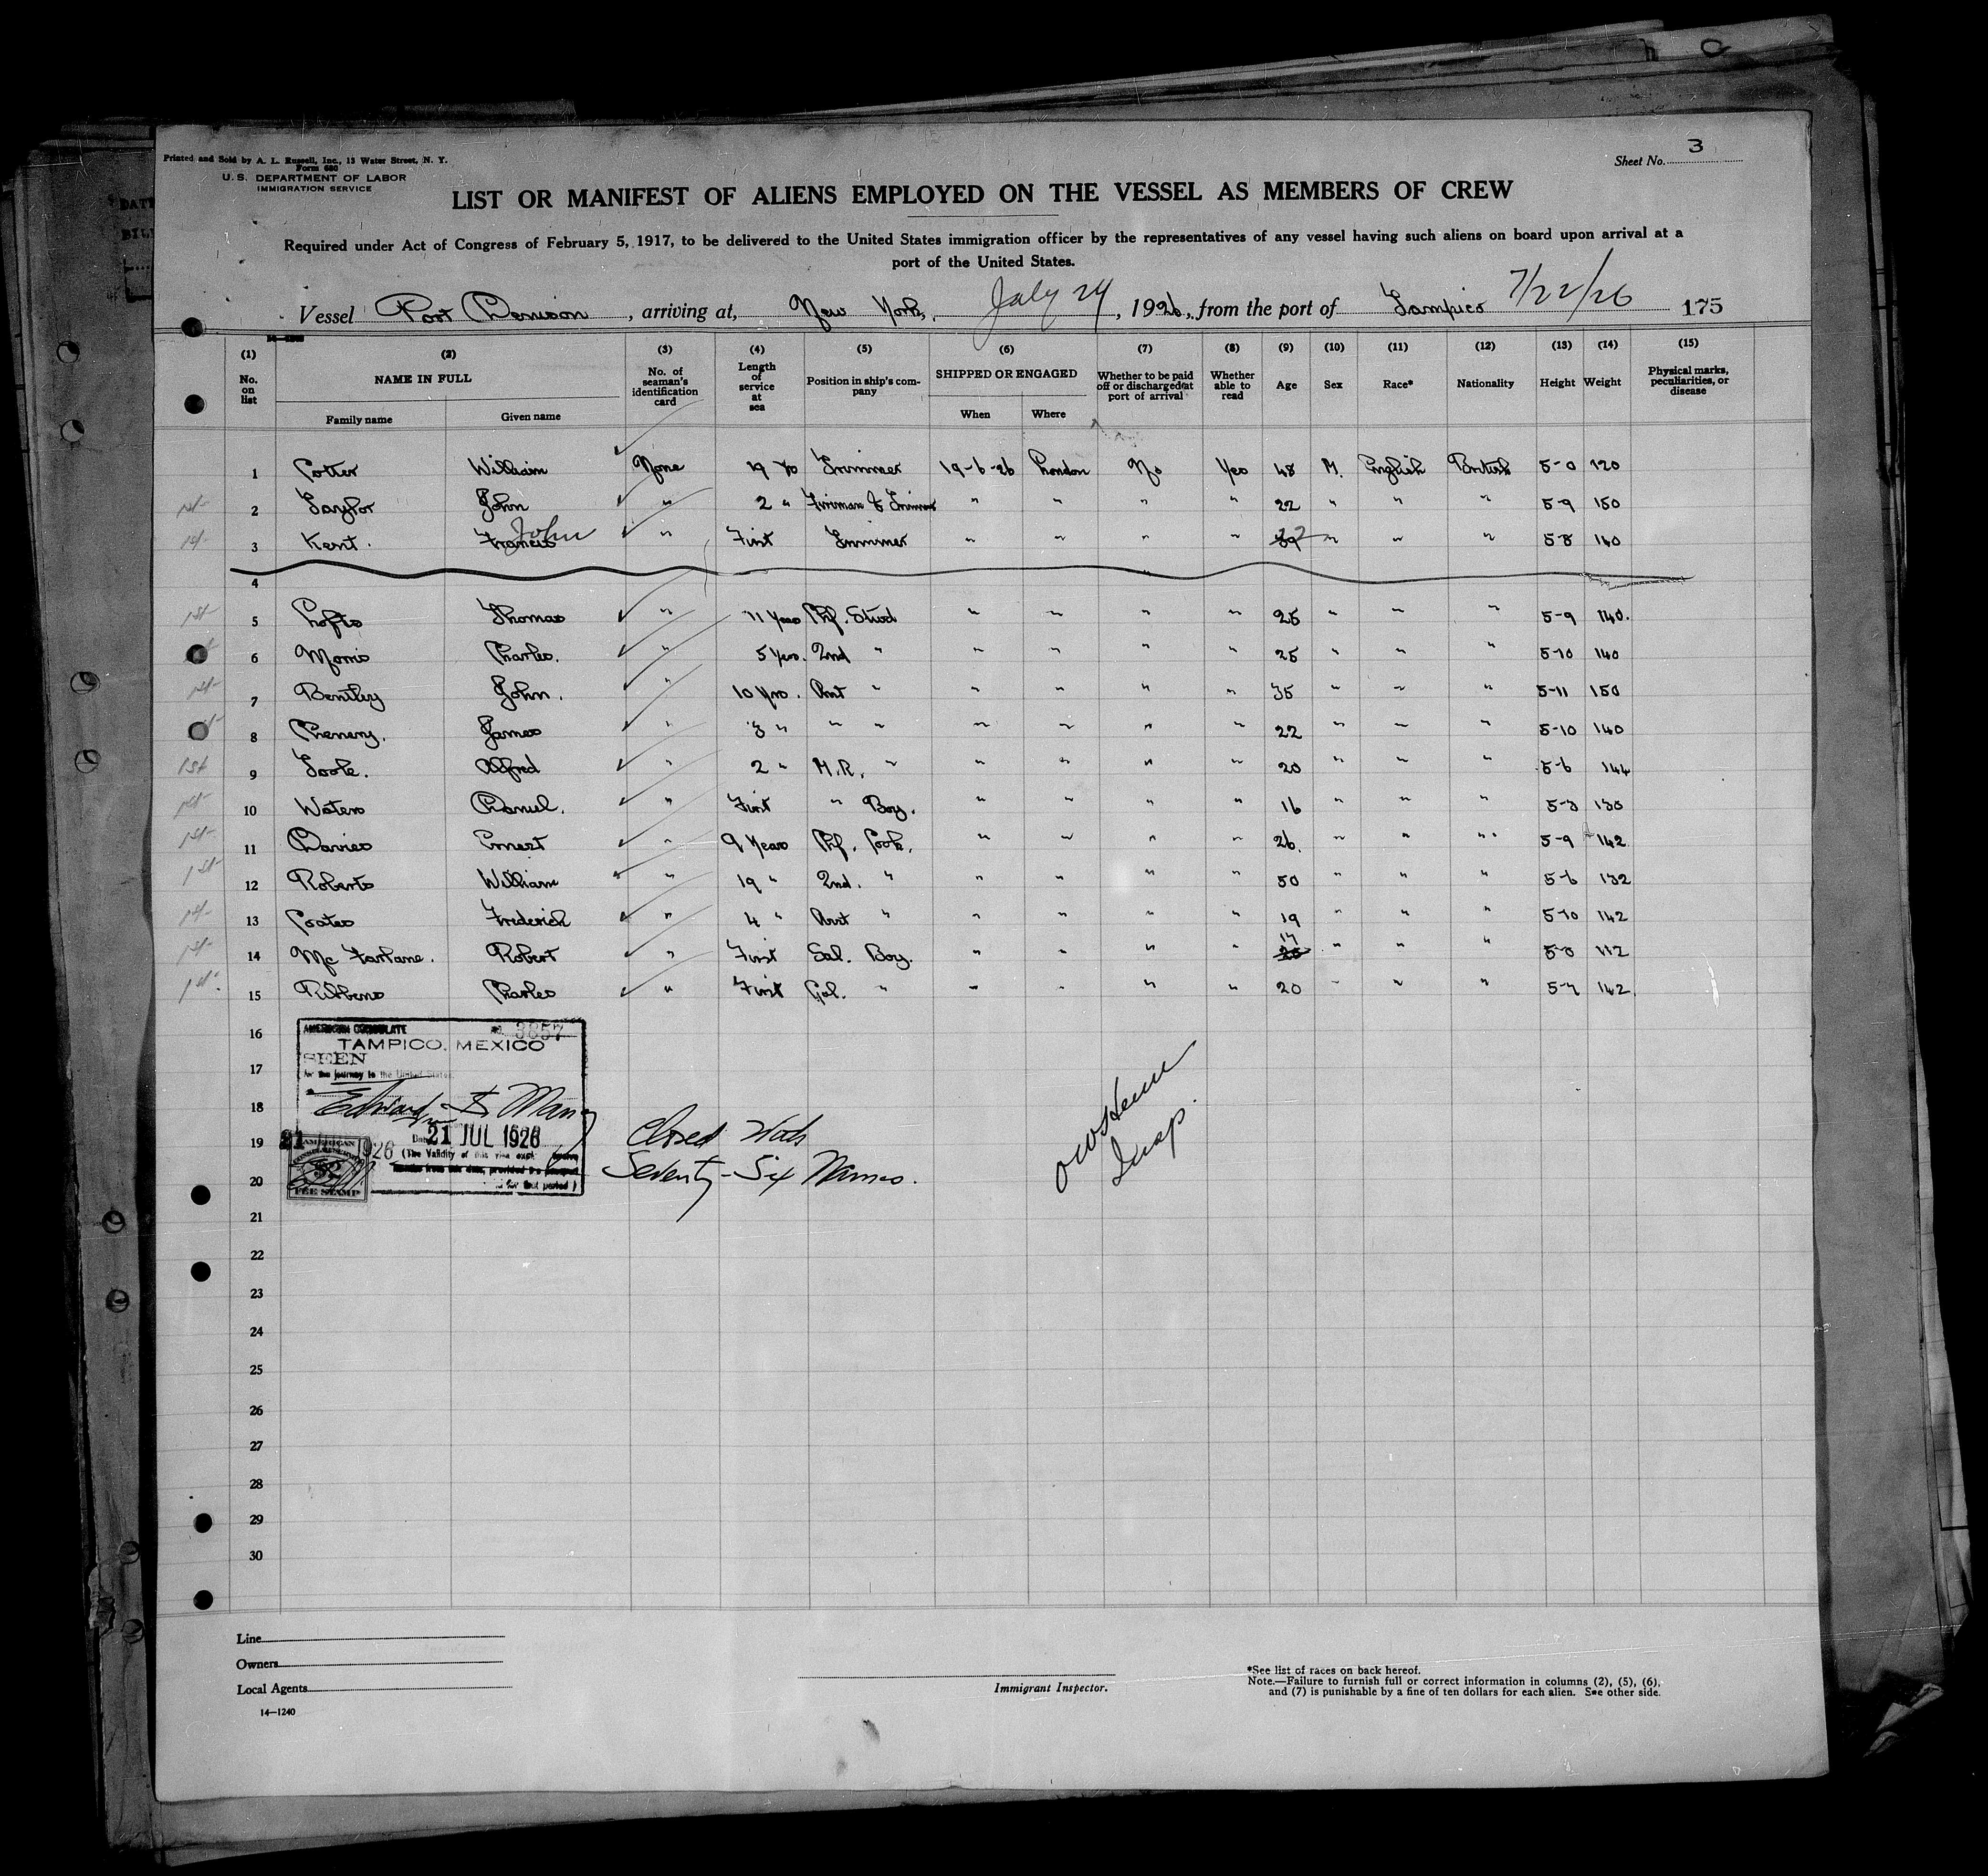 Printed and Sold by A. L. Russell, Inc., 13 Water Street, N. Y.
Form 680
U. S. DEPARTMENT OF LABOR
IMMIGRATION SERVICE
Sheet No. 3
LIST OR MANIFEST OF ALIENS EMPLOYED ON THE VESSEL AS MEMBERS OF CREW
Required under Act of Congress of February 5, 1917, to be delivered to the United States immigration officer by the representatives of any vessel having such aliens on board upon arrival at a
port of the United States.
Vessel Port Denison, arriving at, New York, July 24, 1926, from the port of Tampico 7/22/26 175
(1) (2) (3) (4) (5) (6) (7) (8) (9) (10) (11) (12) (13) (14) (15)
No. on list NAME IN FULL No. of seaman's identification card Length of service at sea Position in ship's company SHIPPED OR ENGAGED Whether to be paid off or discharged at port of arrival Whether able to read Age Sex Race* Nationality Height Weight Physical marks, peculiarities, or disease
Family name Given name When Where
1 Cotter William None 19 Yrs Trimmer 19-6-26 London No Yes 48 M. English British 5-0 120
1st 2 Taylor John " 2 " Fireman & Trimmer " " " " 22 " " " 5-9 150
1st 3 Kent. Francis John " First Trimmer " " " " 39 22 " " " 5-8 140
4 "
1st 5 Crofts Thomas " 11 Years Chf. Stwd " " " " 25 " " " 5-9 140.
6 Morris Charles. " 5 Yers. 2nd " " " " " 25 " " " 5-10 140
1st 7 Bentley John. " 10 Yrs. Asst " " " " " 35 " " " 5-11 150
8 Chenery. James " 3 " " " " " " " 22 " " " 5-10 140
1st 9 Toole. Alfred " 2 " M.R. " " " " " 20 " " " 5-6 144
1st 10 Waters Daniel. " First " Boy. " " " " 16 " " " 5-3 130
1st 11 Davies Ernest " 9 Years Chf. Cook. " " " " 26. " " " 5-9 142
1st 12 Roberts William " 19 " 2nd. " " " " " 50 " " " 5-6 132
1st 13 Coates Frederick " 4 " Asst " " " " " 19 " " " 5-10 142
1st 14 Mc Farlane. Robert " First Sal. Boy. " " " " 17 " " " 5-0 112
1st 15 Ribbens Charles " First Gal. " " " " " 20 " " " 5-7 142
16
17
18
19
20
21
22
23
24
25
26
27
28
29
30
AMERICAN CONSULATE No. 3857
TAMPICO, MEXICO
SEEN
for the journey to the United States
Edward S Maney
21 JUL 1926
(The Validity of this visa
from this date, provided the passport
for that period)
AMERICAN
FEE STAMP
Closed With
Seventy-Six Names.
Insp.
Line
Owners
Local Agents
14—1240
Immigrant Inspector.
*See list of races on back hereof.
Note.—Failure to furnish full or correct information in columns (2), (5), (6),
and (7) is punishable by a fine of ten dollars for each alien. See other side.